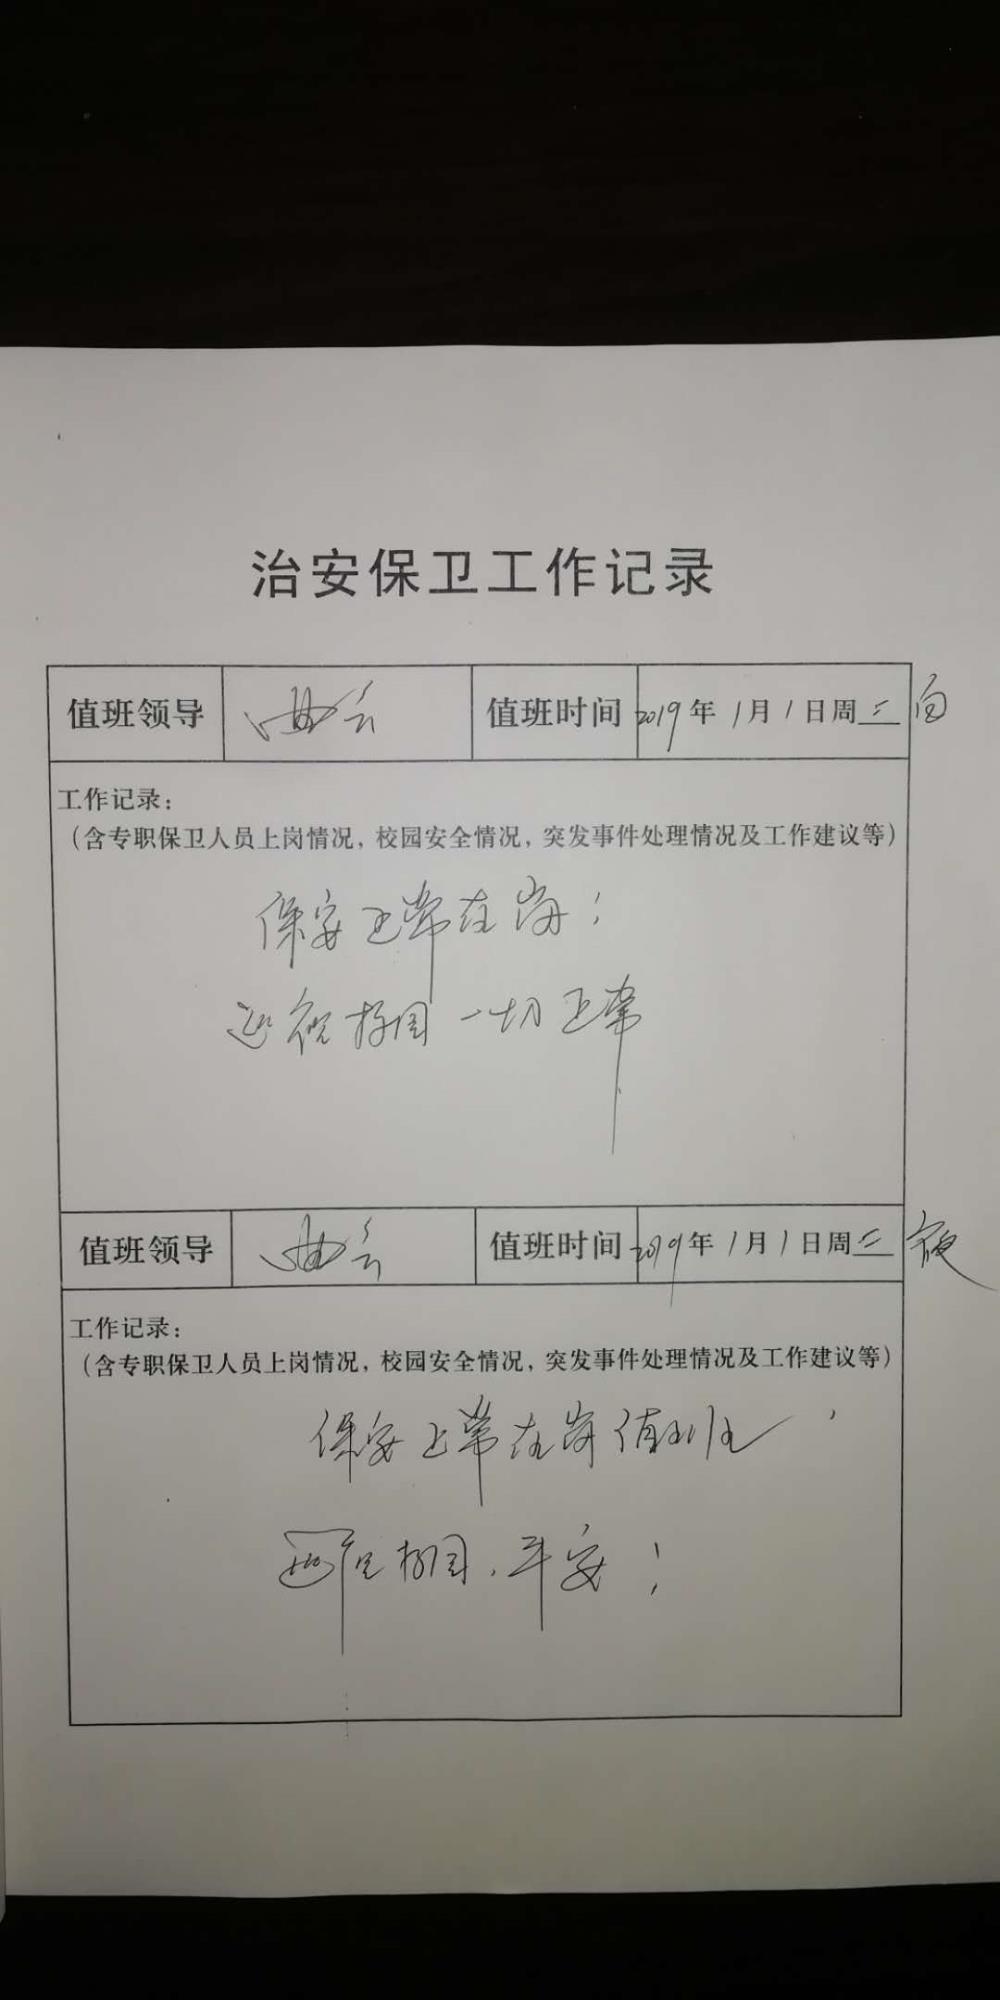 治安保卫工作记录
值班领导 值班时间 2019年1月1日周二 白
工作记录：
（含专职保卫人员上岗情况，校园安全情况，突发事件处理情况及工作建议等）
保安正常在岗；
巡视校园一切正常
值班领导 值班时间 2019年1月1日周二 夜
工作记录：
（含专职保卫人员上岗情况，校园安全情况，突发事件处理情况及工作建议等）
保安正常在岗值班，
校园，平安！